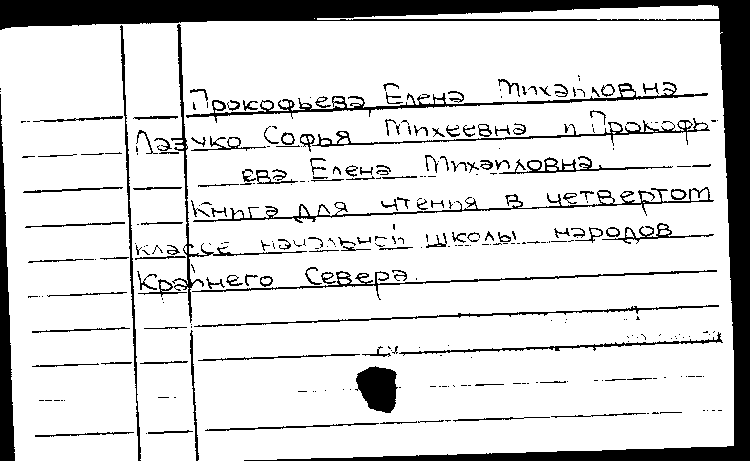 Прокофьева, Елена Михайловна
Лазуко Софья Михеевна и Прокофь-
ева Елена Михайловна.
Книга для чтения в четвертом
классе начальной школы народов
Крайнего Севера.
см.